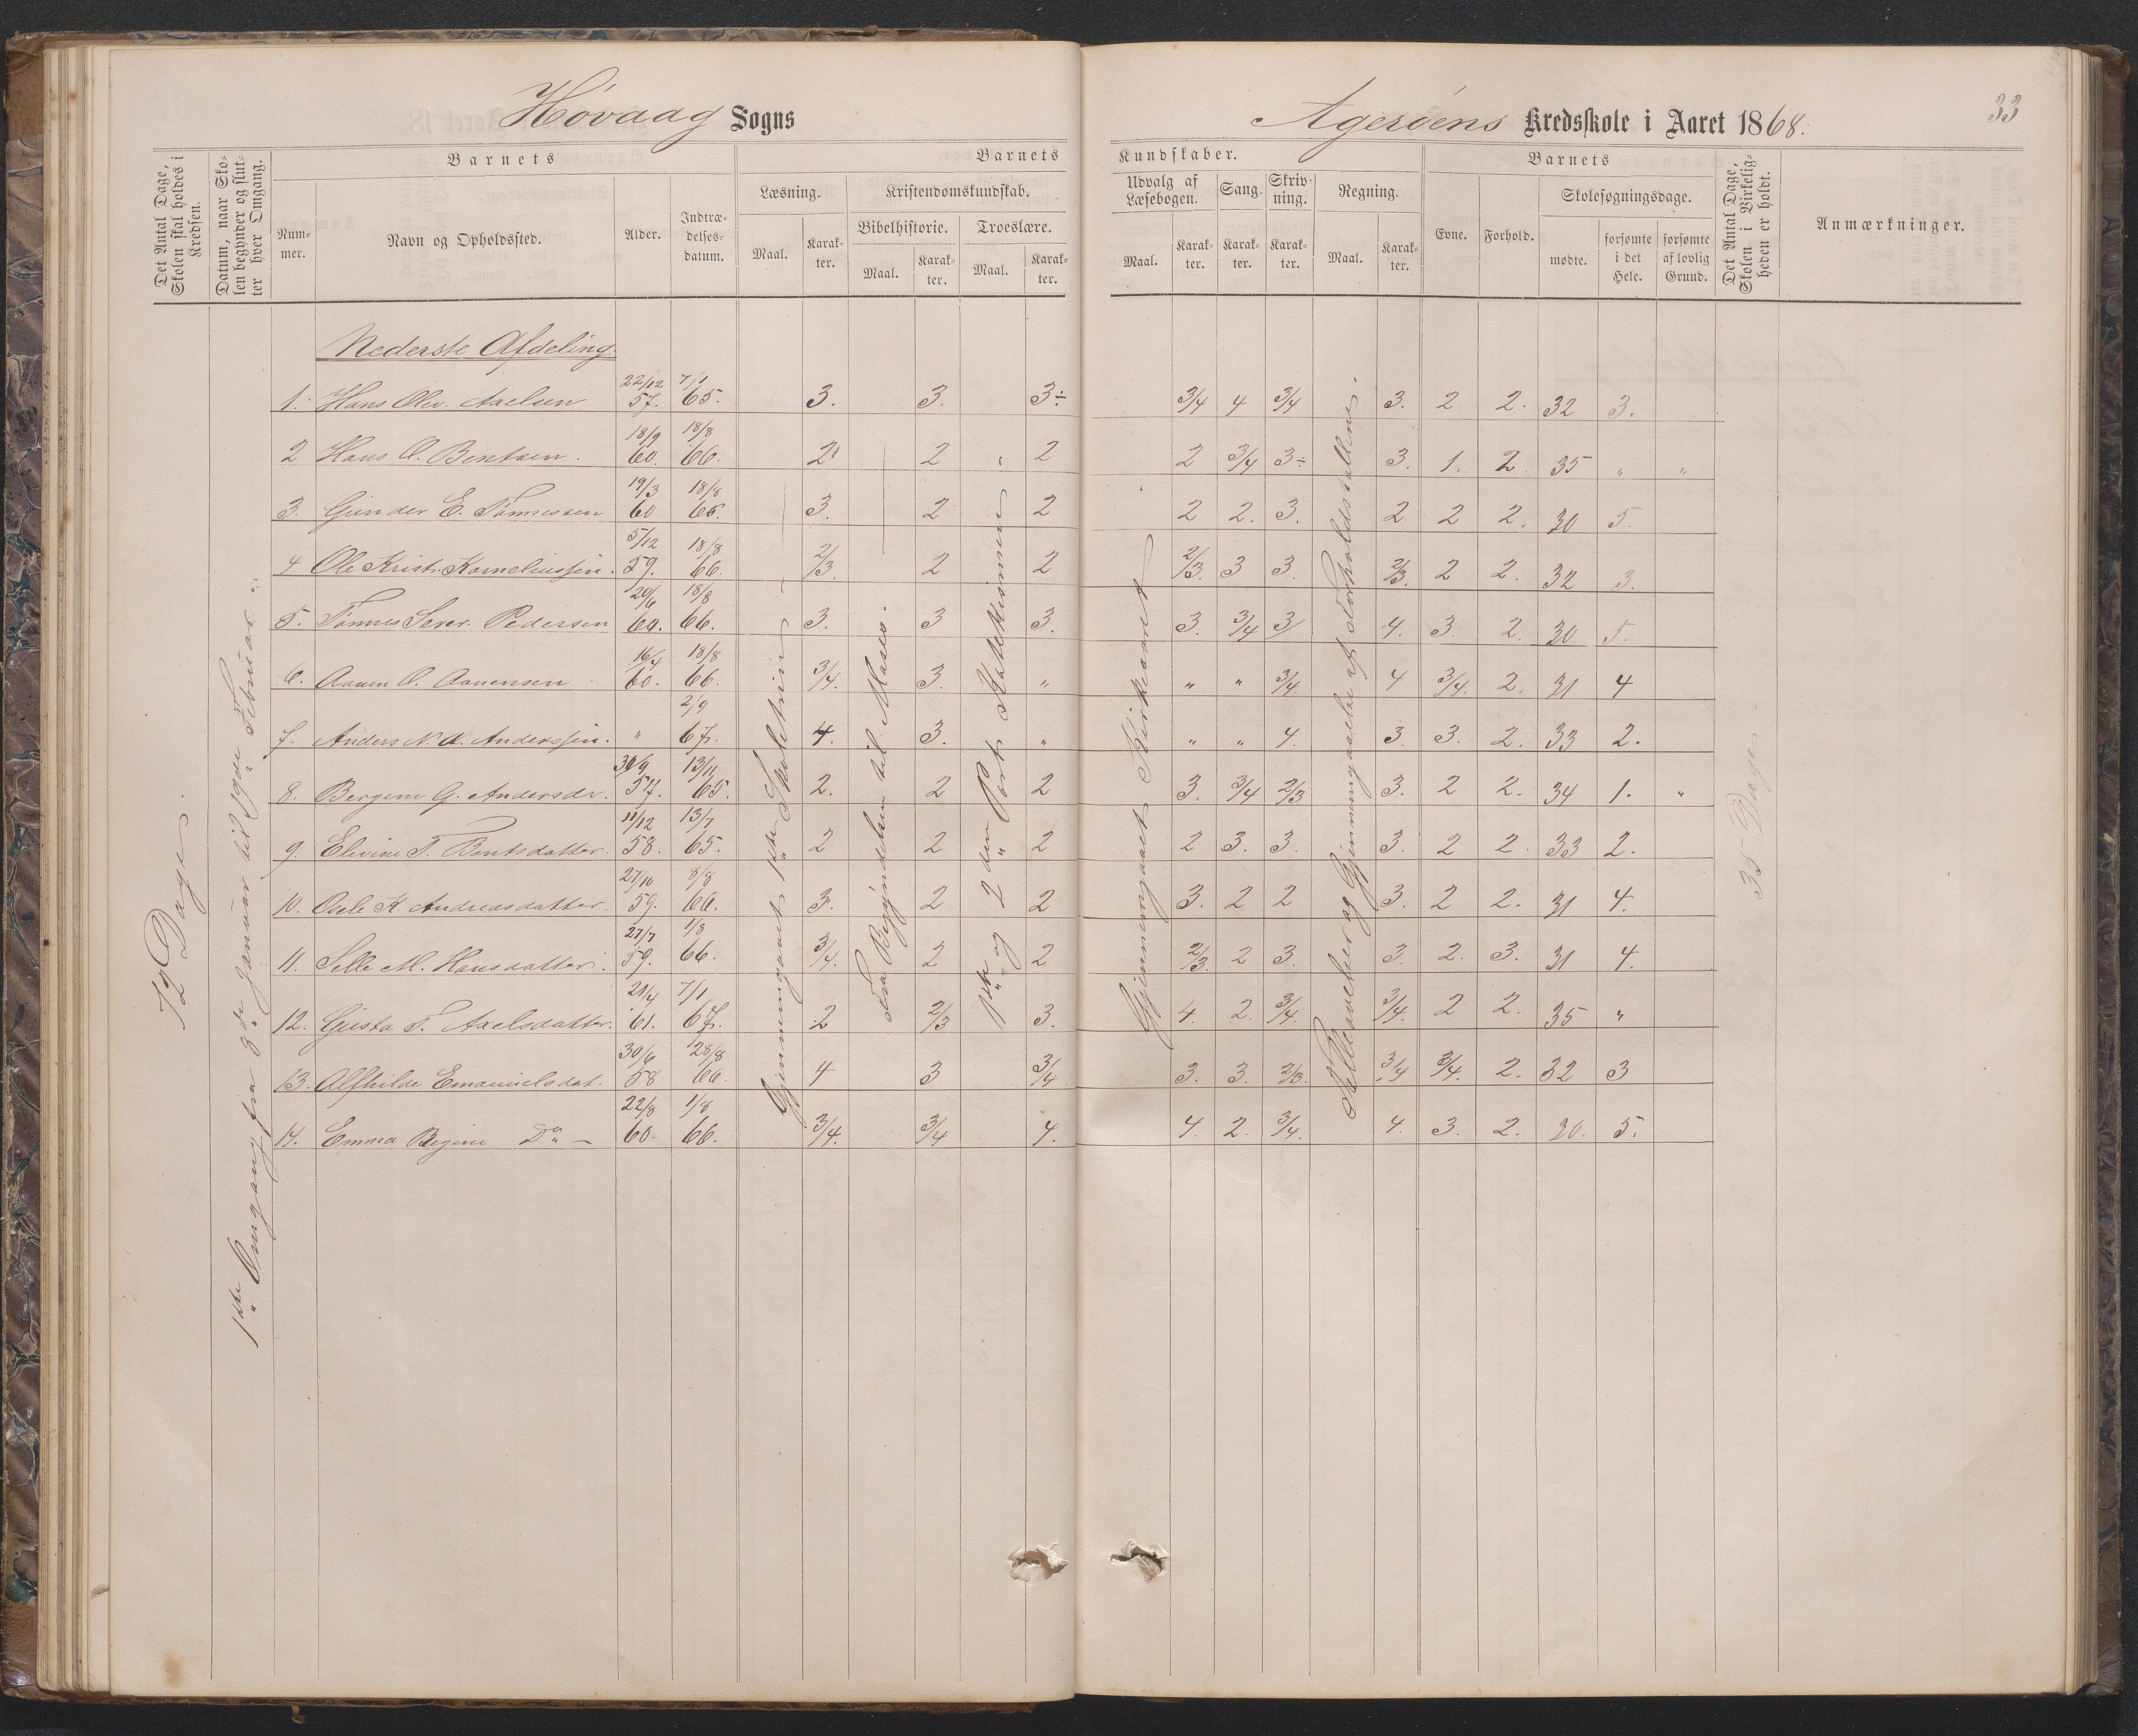 Høvaag Sogns
Agerøens Kredsskole i Aaret 1868.
33
Det Antal Dage, Skolen skal holdes i Kredsen.
Datum, naar Skolen begynder og slutter hver Omgang.
Barnets
Nummer.
Navn og Opholdssted.
Alder.
Indtrædelsesdatum.
Barnets
Læsning.
Maal.
Karakter.
Kristendomskundskab.
Bibelhistorie.
Maal.
Karakter.
Troeslære.
Maal.
Karakter.
Kundskaber.
Udvalg af Læsebogen.
Maal.
Karakter.
Sang.
Karakter.
Skrivning.
Karakter.
Regning.
Maal.
Karakter.
Barnets
Evne.
Forhold.
Skolesøgningsdage.
mødte.
forsømte i det Hele.
forsømte af lovlig Grund.
Det Antal Dage, Skolen i Virkeligheden er holdt.
Anmærkninger.
72 Dage
1ste Omgang fra 8de Januar til 19de Februar
Gjennemgaaet 1ste Skoletrin
Fra Begyndelsen til Moses.
1ste og 2den Part Katekismen
Gjennemgaaet Kirkeaaret
og Gjennemgaaelse af Forholdstallene.
35 Dage
Nederste Afdeling.
1. Hans Olv. Axelsen 22/12 57. 7/1 65. 3. 3. 3÷ 3/4 4 3/4 3. 2 2. 32 3.
2 Hans O. Bentsen. 18/9 60. 18/8 66. 2 2 2 2 3/4 3÷ 3. 1. 2. 35 " "
3. Gunder E. Tønnessen 19/3 60 18/8 66. 3. 2 2 2 2. 3. 2. 2 2. 30 5.
4 Ole Krist. Korneliussen. 5/12 59. 18/8 66. 2/3. 2 2 2/3. 3 3. 2/3. 2 2. 32 3.
5. Tønnes Sever. Pedersen 20/6 60. 18/8 66. 3. 3 3. 3. 3/4 3 4. 3. 2. 30 5.
6. Aanen O. Aanensen 16/4 60. 18/8 66. 3/4. 3. " " " 3/4. 4 3/4. 2. 31 4
7. Anders N. A. Anderssen. " 2/9 67. 4. 3. " " " 4. 3. 3. 2. 33 2.
8. Bergine G. Andersdr. 30/9 57. 13/11 65. 2. 2 2 3. 3/4 2/3 3. 2 2. 34 1. "
9. Elevine T. Bentsdatter. 11/12 58. 13/7 65. 2 2 2 2 3. 3. 3. 2 2. 33 2.
10. Oscle K. Andreasdatter. 27/10 59. 8/8 66. 3. 2 2 3. 2 2 3. 2 2. 31 4.
11. Selle M. Hansdatter. 27/7 59. 1/8 66. 3/4. 2 2 2/3. 2 3. 3. 2. 3. 31 4.
12. Gusta T. Axelsdatter. 21/4 61. 7/1 67. 2 2/3 3. 4. 2. 3/4. 3/4. 2 2. 35 "
13. Alfhilde Emanuelsdat. 30/6 58 28/8 66. 4 3 3/4 3. 3. 2/3. 3/4 3/4. 2. 32 3
14. Emma Regine Do — 22/8 60. 1/8 66. 3/4. 3/4 4. 4. 2. 3/4. 4. 3. 2. 30. 5.